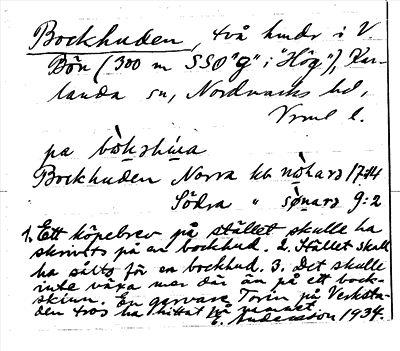 Bockhuden, två hmdr i V.
Bön (300 m SSO "g" i "Hög"), Kar-
landa sn, Nordmarks hd,
Vrml l.
på
Bockhuden Norra kb nòhars 17:4
Södra " sønars 9:2
1. Ett köpebrev på stället skulle ha
skrivits på en bockhud. 2. Stället skulle
ha sålts för en bockhud. 3. Det skulle
inte växa mer där än på ett bock-
skinn. En garvare Torin på Verksta-
den tros ha hittat på namnet.
E. Andersson 1934.